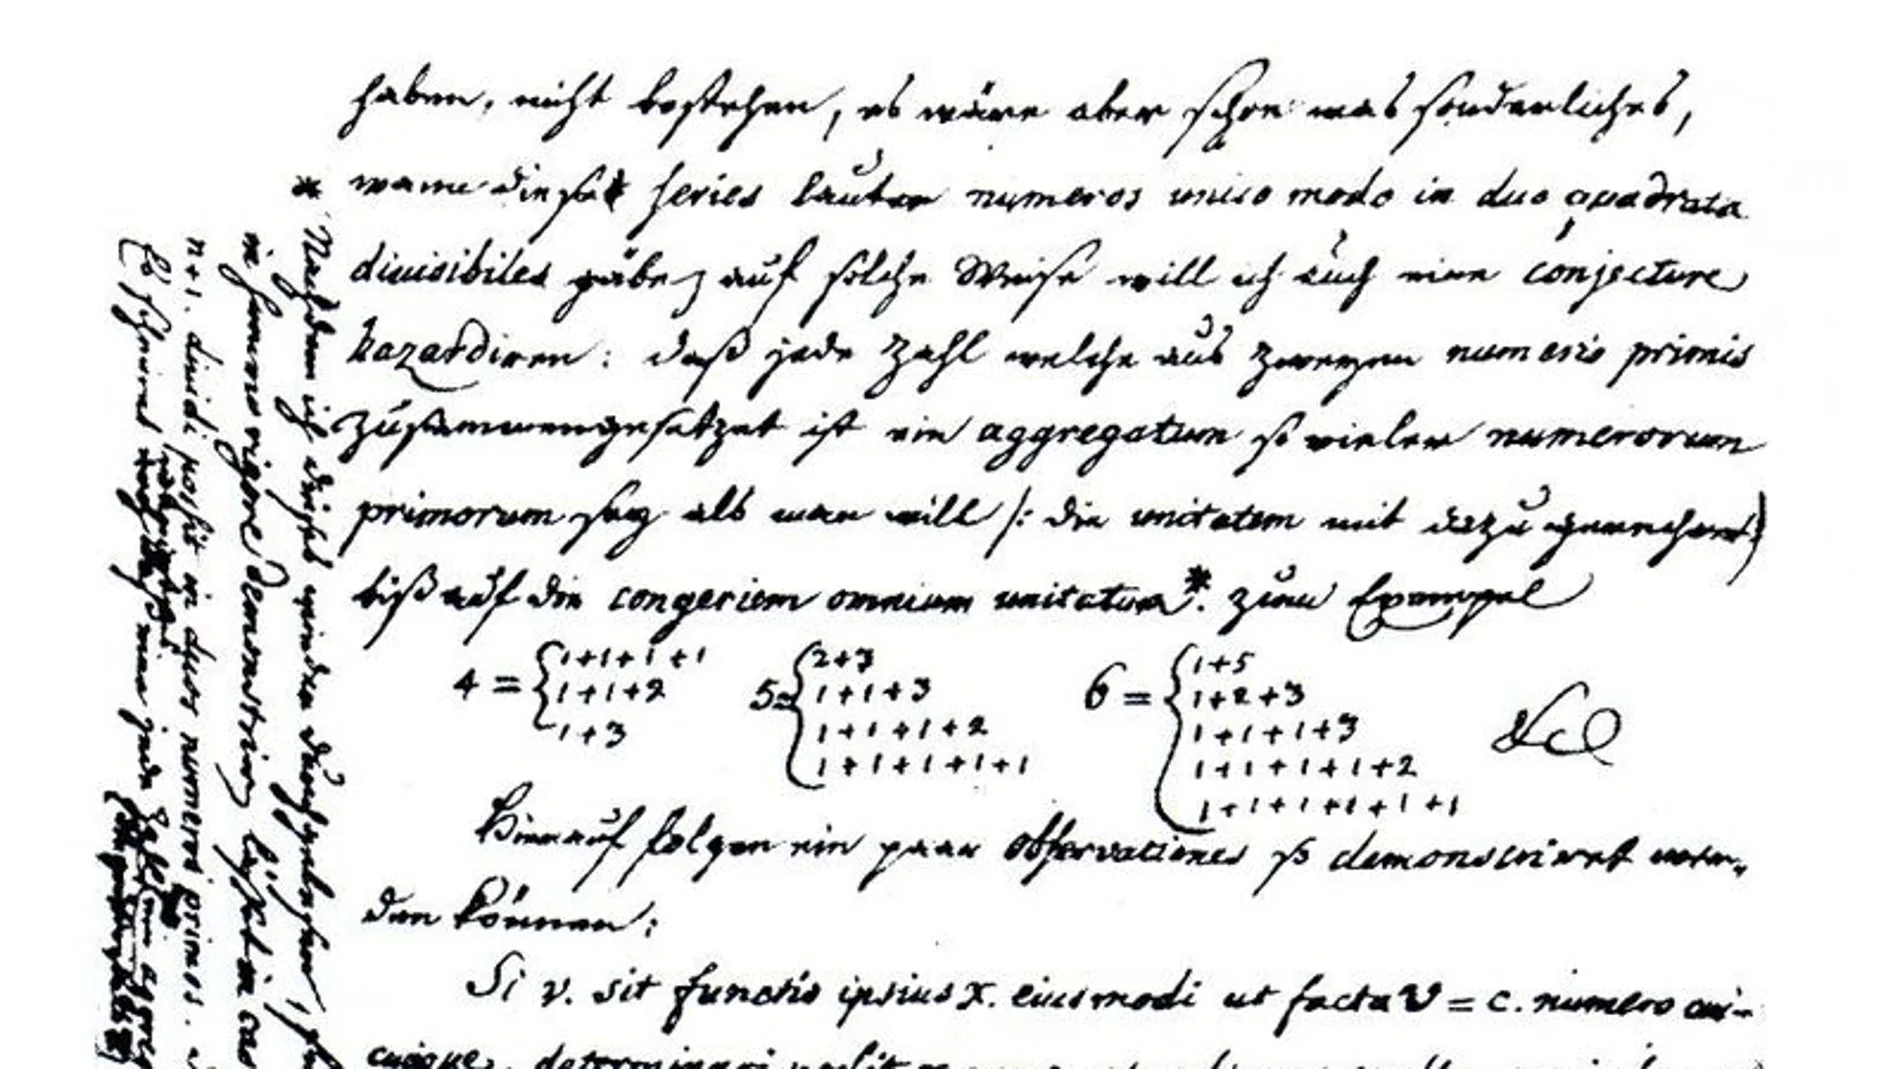 haben, nicht bestehen, es wäre aber schon was sonderliches,
wann diese series lauter numeros unico modo in duo quadrata
divisibiles gäbe auf solche Weise will ich auch eine conjecture
hazardiren: daß jede Zahl welche aus zweyen numeris primis
zusammengesetzet ist ein aggregatum so vieler numerorum
primorum sey als man will /: die unitatem mit dazu gerechnet :/
biß auf die congeriem omnium unitatum*. zum Exempel
4 = { 1+1+1+1
1+1+2
1+3
5 = { 2+3
1+1+3
1+1+1+2
1+1+1+1+1
6 = { 1+5
1+2+3
1+1+1+3
1+1+1+1+2
1+1+1+1+1+1
&c
Hierauf folgen ein paar observationes so demonstriret wer-
den können:
Si v. sit functio ipsius x. eiusmodi ut facta v = c. numero cui-
cunque, determinari possit x
* Nachdem ich dieses wieder durchgelesen,
in summo rigore demonstriren läßet in cas
n+1. dividi possit in duos numeros primos.
Es scheinet daß eine jede Zahl ein aggreg